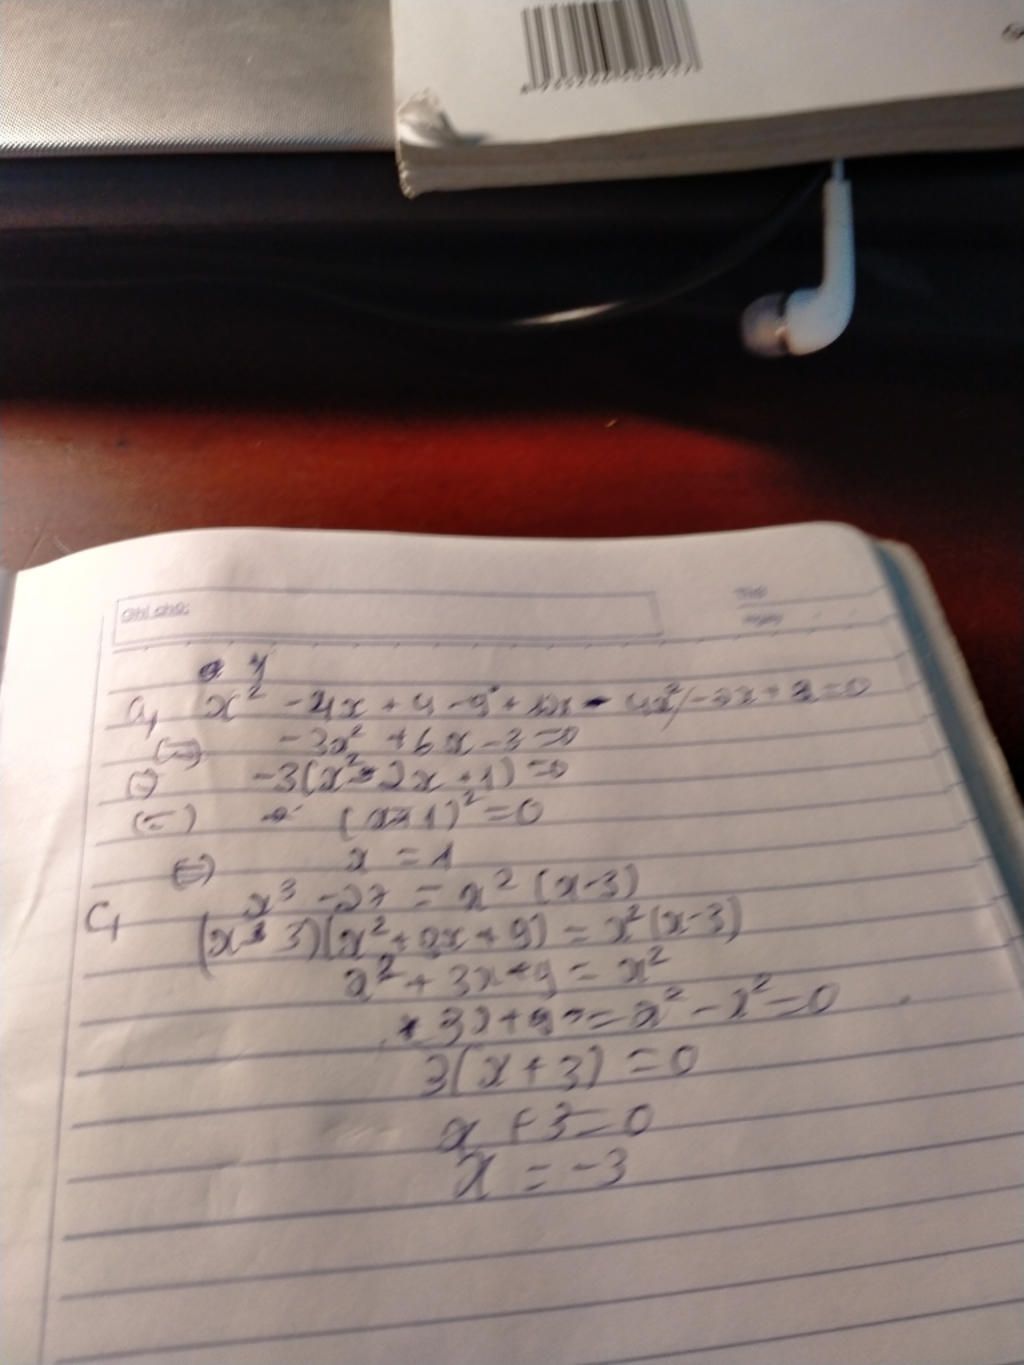 Ghi chú:
a, x² - 4x + 4 - 9 + 12x - 4x² - 2x + 2 = 0
(=) -3x² + 6x - 3 = 0
(=) -3(x² - 2x + 1) = 0
(=) (x - 1)² = 0
(=) x = 1
C, x³ - 27 = x² (x-3)
(x - 3)(x² + 3x + 9) = x² (x-3)
x² + 3x + 9 = x²
3x + 9 = x² - x² = 0
3(x + 3) = 0
x + 3 = 0
x = -3